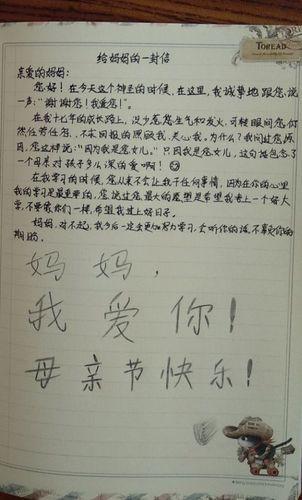 TOREAD
给妈妈的一封信
亲爱的妈妈：
您好！在今天这个神圣的时候，在这里，我诚挚地跟您说
一声："谢谢您！我爱您！"。
在我十七年的成长路上，没少惹您生气和发火，可转眼间您仍
然任劳任怨、不求回报的照顾我，关心我。为什么？我问过您原
因，您这样说："因为我是您女儿。"只因我是您女儿，这句话包含了
一个母亲对孩子多么深的爱啊！
在我学习的时候，您从来不会让我干任何事情，因为在你的心里
我的学习是最重要的，您说过您最大的愿望是希望我考上一个好大
学，不要像你们一样，希望我过上好日子。
妈妈，对不起，我今后一定会更加努力学习，会听你的话，不辜负你的
期盼。
妈妈，
我爱你！
母亲节快乐！